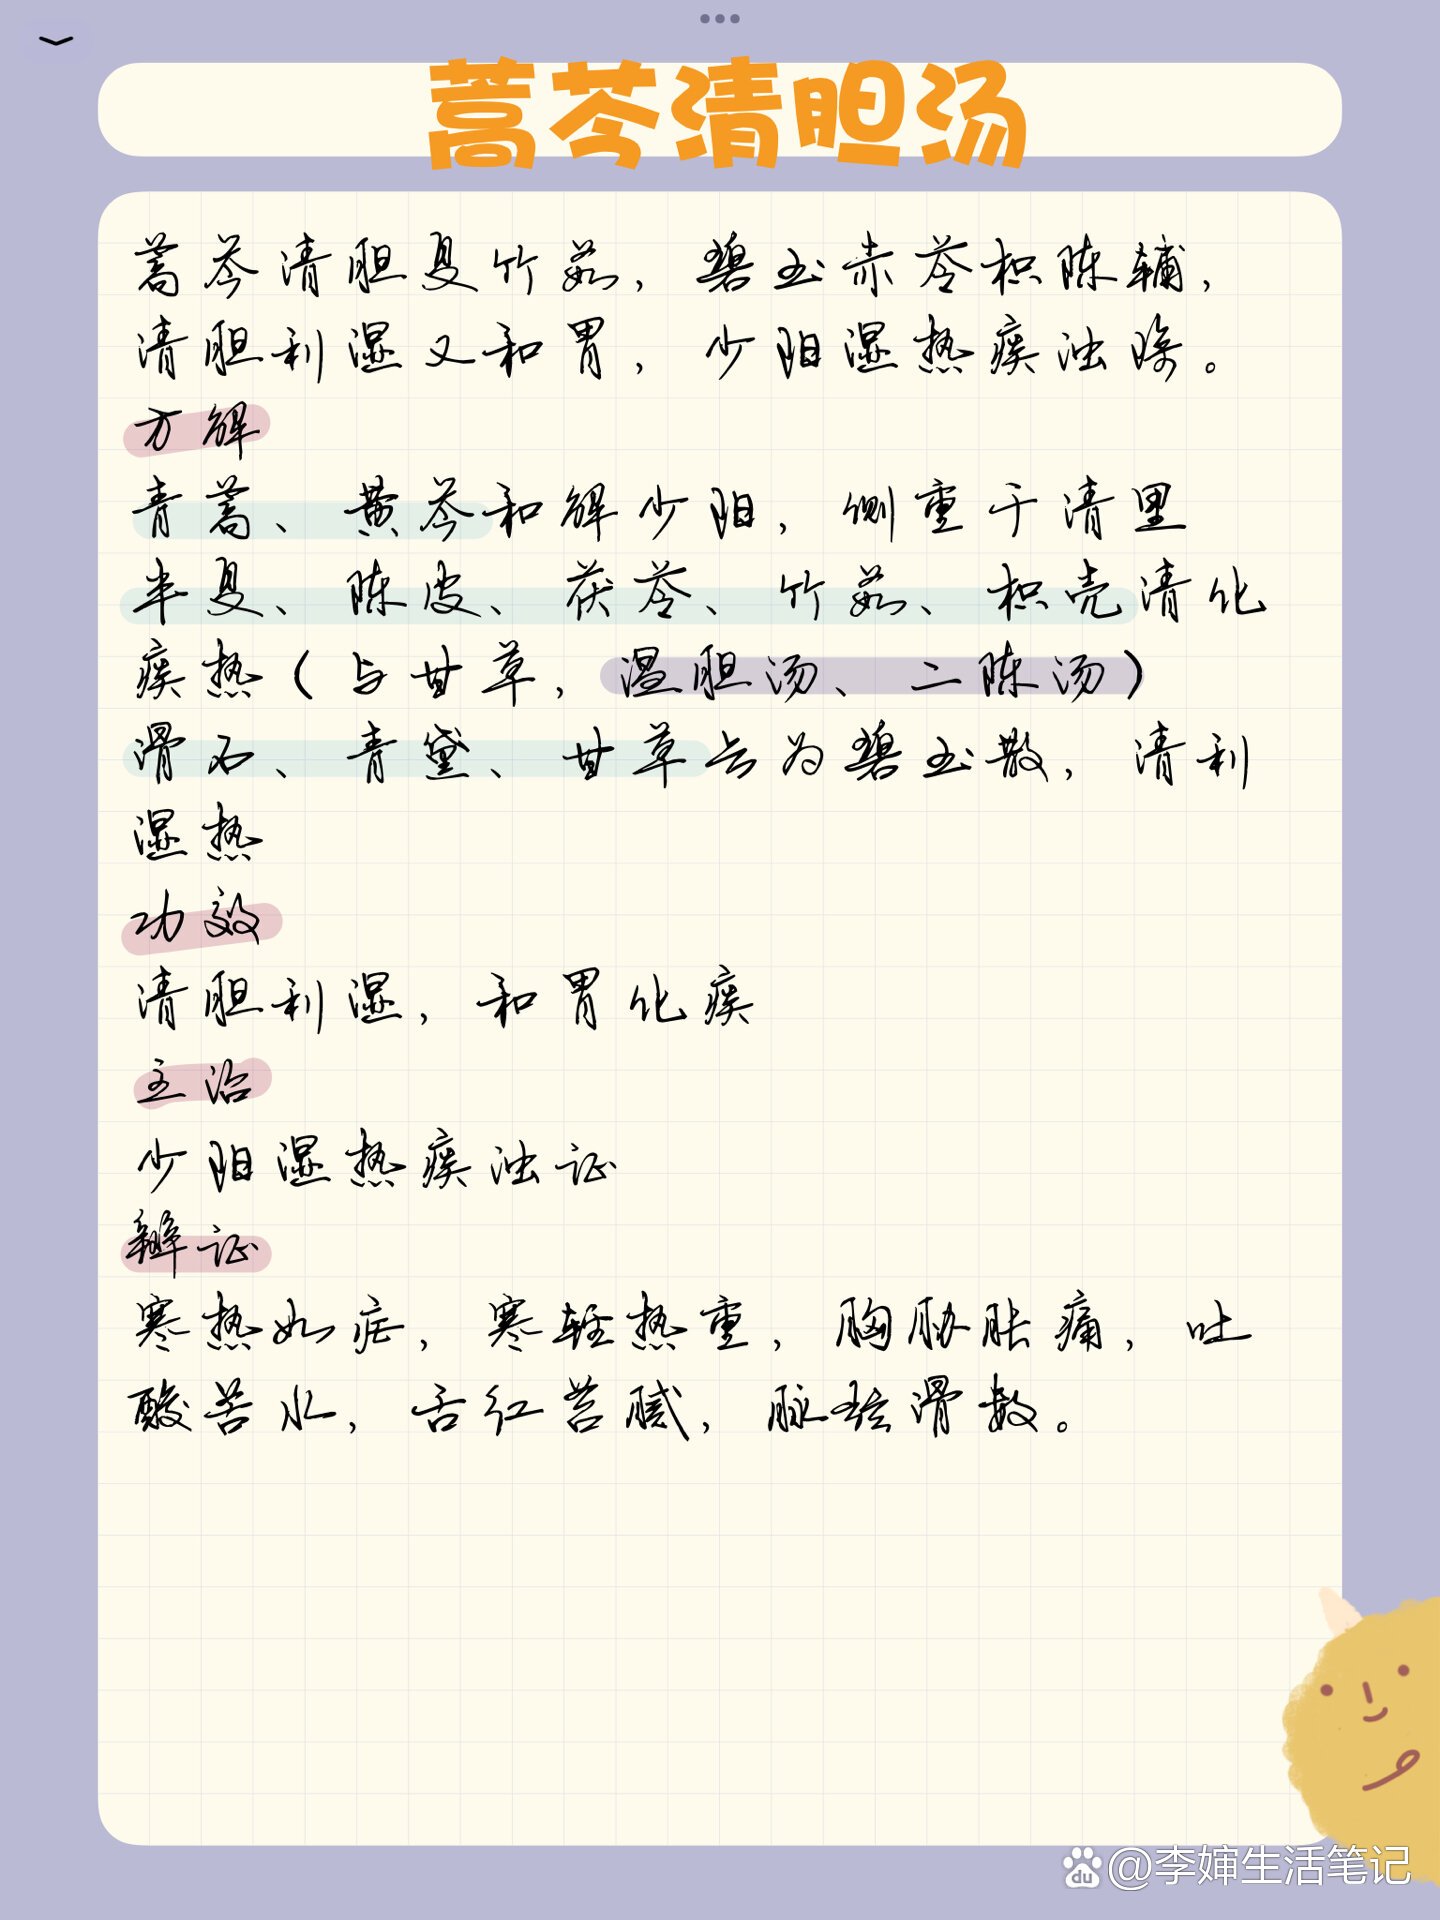 蒿芩清胆汤
蒿芩清胆夏竹茹，碧玉赤苓枳陈辅，
清胆利湿又和胃，少阳湿热痰浊除。
方解
青蒿、黄芩和解少阳，侧重于清里
半夏、陈皮、茯苓、竹茹、枳壳清化
痰热（与甘草，温胆汤、二陈汤）
滑石、青黛、甘草云为碧玉散，清利
湿热
功效
清胆利湿，和胃化痰
主治
少阳湿热痰浊证
辨证
寒热如疟，寒轻热重，胸胁胀痛，吐
酸苦水，舌红苔腻，脉弦滑数。
@李婶生活笔记